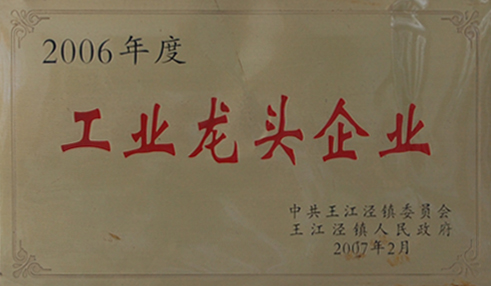 2006年度
工业龙头企业
中共王江泾镇委员会
王江泾镇人民政府
2007年2月